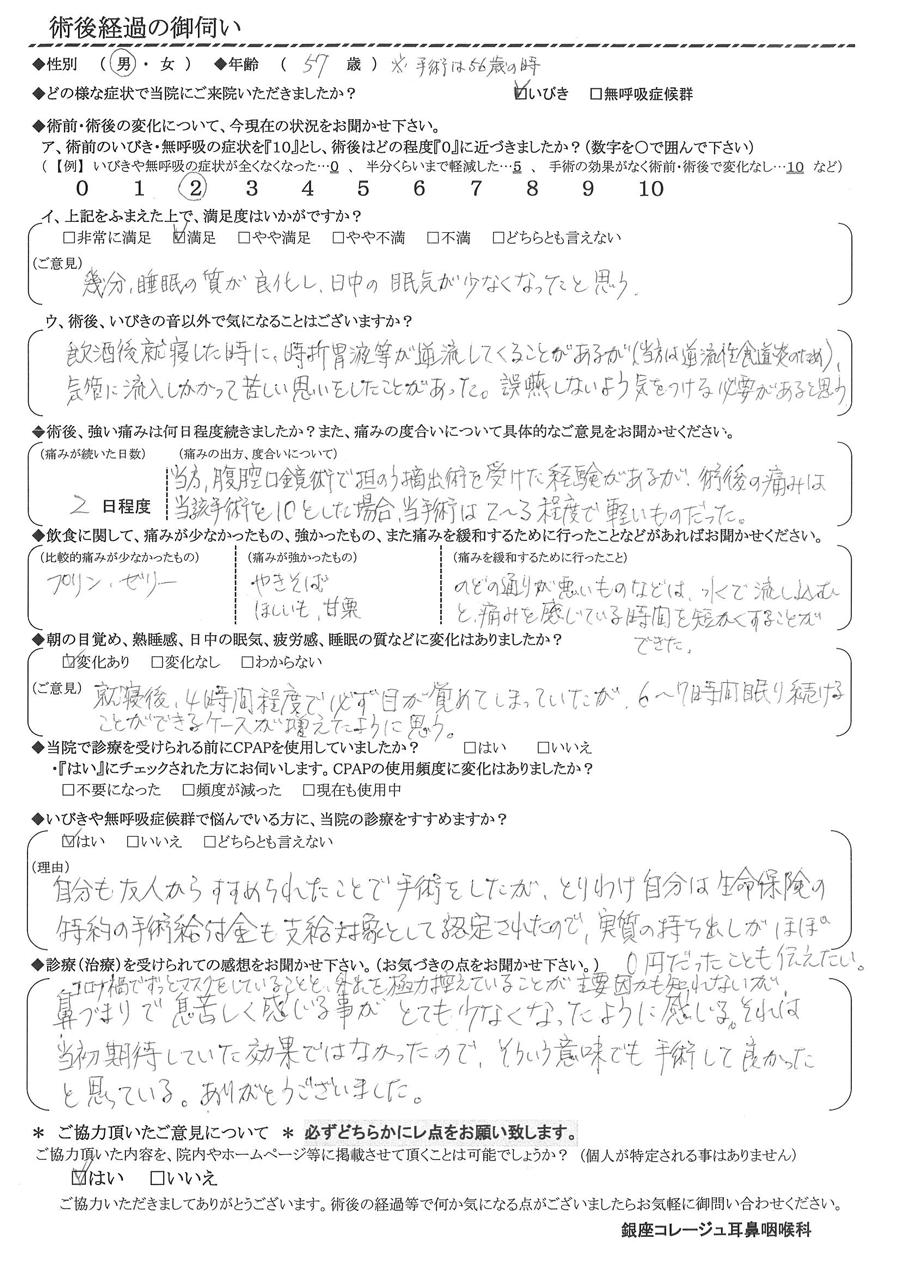 術後経過の御伺い
◆性別 ( 男・女 ) ◆年齢 ( 57 歳 ) ※手術は56歳の時
◆どの様な症状で当院にご来院いただきましたか? ☑いびき □無呼吸症候群
◆術前・術後の変化について、今現在の状況をお聞かせ下さい。
ア、術前のいびき・無呼吸の症状を『10』とし、術後はどの程度『0』に近づきましたか?(数字を〇で囲んで下さい)
(【例】いびきや無呼吸の症状が全くなくなった…0 、 半分くらいまで軽減した…5 、 手術の効果がなく術前・術後で変化なし…10 など)
0 1 2 3 4 5 6 7 8 9 10
イ、上記をふまえた上で、満足度はいかがですか?
□非常に満足 ☑満足 □やや満足 □やや不満 □不満 □どちらとも言えない
(ご意見)
幾分、睡眠の質が良化し、日中の眠気が少なくなったと思う。
ウ、術後、いびきの音以外で気になることはございますか?
飲酒後就寝した時に、時折胃液等が逆流してくることがあるが(当方は逆流性食道炎のため)、
気管に流入しかかって苦しい思いをしたことがあった。誤燕しないよう気をつける必要があると思う
◆術後、強い痛みは何日程度続きましたか?また、痛みの度合いについて具体的なご意見をお聞かせください。
(痛みが続いた日数) (痛みの出方、度合いについて)
当方、腹腔口鏡術で担のう摘出術を受けた経験があるが、術後の痛みは
2 日程度 当該手術を10とした場合、当手術は2〜3程度で軽いものだった。
◆飲食に関して、痛みが少なかったもの、強かったもの、また痛みを緩和するために行ったことなどがあればお聞かせください。
(比較的痛みが少なかったもの) (痛みが強かったもの) (痛みを緩和するために行ったこと)
プリン・ゼリー やきそば のどの通りが悪いものなどは、水で流し込む
ほしいも、甘栗 と、痛みを感じている時間を短かくすることが
できた。
◆朝の目覚め、熟睡感、日中の眠気、疲労感、睡眠の質などに変化はありましたか?
☑変化あり □変化なし □わからない
(ご意見) 就寝後、4時間程度で必ず目が覚めてしまっていたが、6〜7時間眠り続ける
ことができるケースが増えたように思う。
◆当院で診療を受けられる前にCPAPを使用していましたか? □はい □いいえ
・『はい』にチェックされた方にお伺いします。CPAPの使用頻度に変化はありましたか?
□不要になった □頻度が減った □現在も使用中
◆いびきや無呼吸症候群で悩んでいる方に、当院の診療をすすめますか?
☑はい □いいえ □どちらとも言えない
(理由)
自分も友人からすすめられたことで手術をしたが、とりわけ自分は生命保険の
特約の手術給付金も支給対象として認定されたので、実質の持ち出しがほぼ
0円だったことも伝えたい。
◆診療(治療)を受けられての感想をお聞かせ下さい。(お気づきの点をお聞かせ下さい。)
コロナ禍でずっとマスクをしていることと、外出を極力控えていることが主要因かも知れないが、
鼻づまりで息苦しく感じる事がとても少なくなったように感じる。それは
当初期待していた効果ではなかったので、そういう意味でも手術して良かった
と思っている。ありがとうございました。
* ご協力頂いたご意見について * 必ずどちらかにレ点をお願い致します。
ご協力頂いた内容を、院内やホームページ等に掲載させて頂くことは可能でしょうか? (個人が特定される事はありません)
☑はい □いいえ
ご協力いただきましてありがとうございます。術後の経過等で何か気になる点がございましたらお気軽に御問い合わせください。
銀座コレージュ耳鼻咽喉科